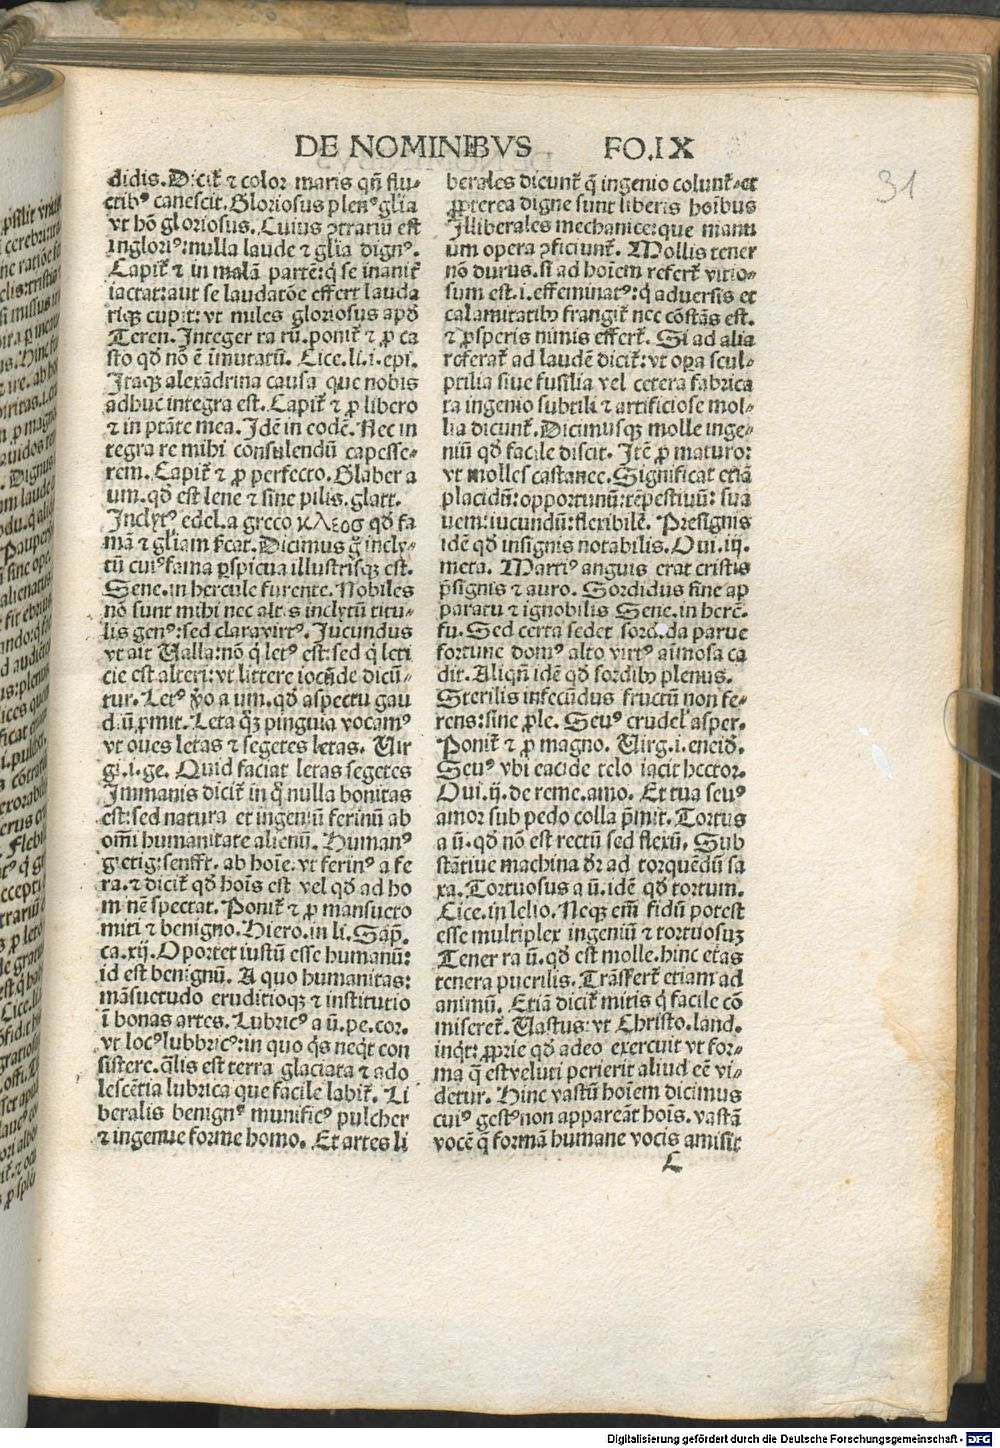 DE NOMINIBVS FO.IX
31
didis. Dicit᷑ ⁊ color maris qn̄ flu-
ctibꝰ canescit. Gloriosus plenꝰ glīa
vt hō gloriosus. Cuius ꝯtrariū est
inglorīꝰ: nulla laude ⁊ glīa dignꝰ.
Capit᷑ ⁊ in malā partē: q̄ se inanit᷑
iactat: aut se laudatōe effert lauda
risqꝫ cupit: vt miles gloriosus apd̄
Teren. Integer ra rū. ponit᷑ ⁊ ꝓ ca
sto qd̄ nō ē īmutatū. Cice. li. i. epi.
Itaqꝫ alexādrina causa que nobis
adhuc integra est. Capit᷑ ⁊ ꝓ libero
⁊ in ptāte mea. Idē in eodē. Nec in
tegra re mihi consulendū capesse-
rem. Capit᷑ ⁊ ꝓ perfecto. Glaber a
um. qd̄ est lene ⁊ sine pilis. glatt.
Inclytꝰ edel. a greco κλεοσ qd̄ fa
mā ⁊ gl̄iam s̄icat. Dicimus ḡ incly-
tū cuiꝰ fama ꝑspicua illustrisqꝫ est.
Sene. in hercule furente. Nobiles
nō sunt mihi nec altꝰ s inclytū titu-
lis genꝰ: sed clara virtꝰ. Jucundus
vt ait Ualla: nō q̄ letꝰ est: sed q̄ leti
cie est alteri: vt littere iocūde dicū-
tur. Letꝰ v̄o a um. qd̄ aspectu gau
diū ꝓmit. Leta qꝫ pinguia vocamꝰ
vt oues letas ⁊ segetes letas. Uir
gi. i. ge. Quid faciat letas segetes
Immanis dicit᷑ in q̄ nulla bonitas
est: sed natura et ingeniū ferinū ab
om̄i humanitate alienū. Humanꝰ
gietig: senfft. ab hoīe. vt ferinꝰ a fe
ra. ⁊ dicit᷑ qd̄ hoīs est vel qd̄ ad ho
minē spectat. Ponit᷑ ⁊ ꝓ mansueto
miti ⁊ benigno. Hiero. in li. Sap̄.
ca. xij. Oportet iustū esse humanū:
id est benignū. A quo humanitas:
māsuetudo eruditioqꝫ ⁊ institutio
ī bonas artes. Lubricꝰ a ū. pe. cor.
vt locꝰ lubbricꝰ: in quo q̄s neq̄t con
sistere. q̄lis est terra glaciata ⁊ ado
lescētia lubrica que facile labit᷑. Li
beralis benignꝰ munificꝰ pulcher
⁊ ingenue forme homo. Et artes li
berales dicunt᷑ q̄ ingenio colunt᷑. et
ꝓpterea digne sunt liberis hoībus
Illiberales mechanice: que manu
um opera ꝯficiunt᷑. Mollis tener
nō durus. si ad hoīem refert᷑ vitio-
sum est. i. effeminatꝰ: q̄ aduersis et
calamitatibꝰ frangit᷑ nec cōstās est.
⁊ ꝓsperis nimis effert᷑. Si ad alia
referat᷑ ad laudē dicit᷑: vt oꝑa scul-
ptilia siue fusilia vel cetera fabrica
ta ingenio subtili ⁊ artificiose mol-
lia dicunt᷑. Dicimusqꝫ molle inge-
niū qd̄ facile discit. Itē ꝓ maturo:
vt molles castanee. Significat etiā
placidū: opportunū: tēpestiuū: sua
uem: iucundū: flexibilē. Presignis
idē qd̄ insignis notabilis. Oui. iij.
meta. Martiꝰ anguis erat cristis
p̄signis ⁊ auro. Sordidus sine ap
paratu ⁊ ignobilis Sene. in herc̄.
fu. Sed certa sedet sordida parue
fortune domꝰ alto virtꝰ aīmosa ca
dit. Aliqn̄ idē qd̄ sordibꝰ plenus.
Sterilis infecūdus fructū non fe-
rens: sine ꝓle. Seuꝰ crudel̄ asper.
Ponit᷑ ⁊ ꝓ magno. Uirg. i. eneid̄.
Seuꝰ vbi eacide telo iacit hector.
Oui. ij. de reme. amo. Et tua seuꝰ
amor sub pedo colla p̄mit. Tortus
a ū. qd̄ nō est rectū sed flexū. Sub
stātiue machina d̄r ad torquēdū sa
xa. Tortuosus a ū. idē qd̄ tortum.
Cice. in lelio. Neqꝫ em̄ fidū potest
esse multiplex ingeniū ⁊ tortuosuꝫ
Tener ra ū. qd̄ est molle. hinc etas
tenera puerilis. Trāsfert᷑ etiam ad
animū. Etiā dicit᷑ mitis q̄ facile cō
miseret᷑. Uastus: vt Christo. land.
inq̄t: ꝓprie qd̄ adeo exercuit vt for-
ma q̄ est veluti perierit aliud eē vi-
detur. Hinc vastū hoīem dicimus
cuiꝰ gestꝰ non appareāt hoīs. vastā
vocē q̄ formā humane vocis amisit
C
Digitalisierung gefördert durch die Deutsche Forschungsgemeinschaft - DFG